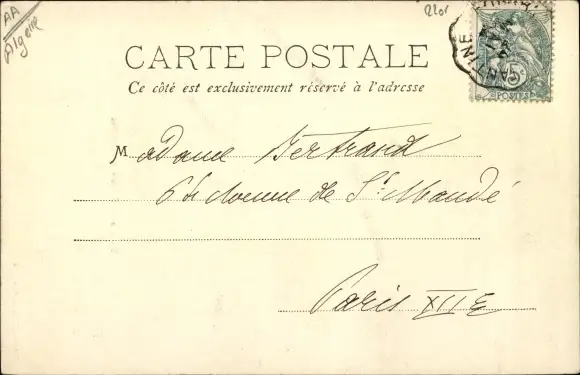 AA
Algérie
2201
CARTE POSTALE
Ce côté est exclusivement réservé à l'adresse
Madame Bertrand
64 Avenue de St Mandé
Paris XIIE
5c
POSTES